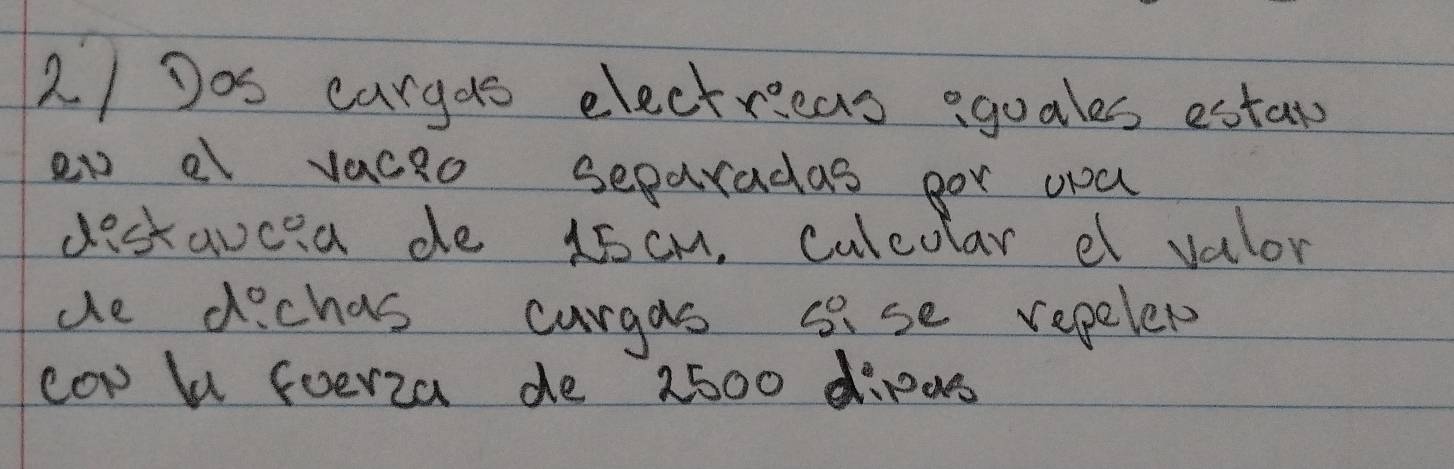 2) Dos cargas electricas iguales estan
en el vacio separadas por una
distancia de 15 cm. Calcular el valor
de dichas cargas si se repelen
con la fuerza de 2500 dinas